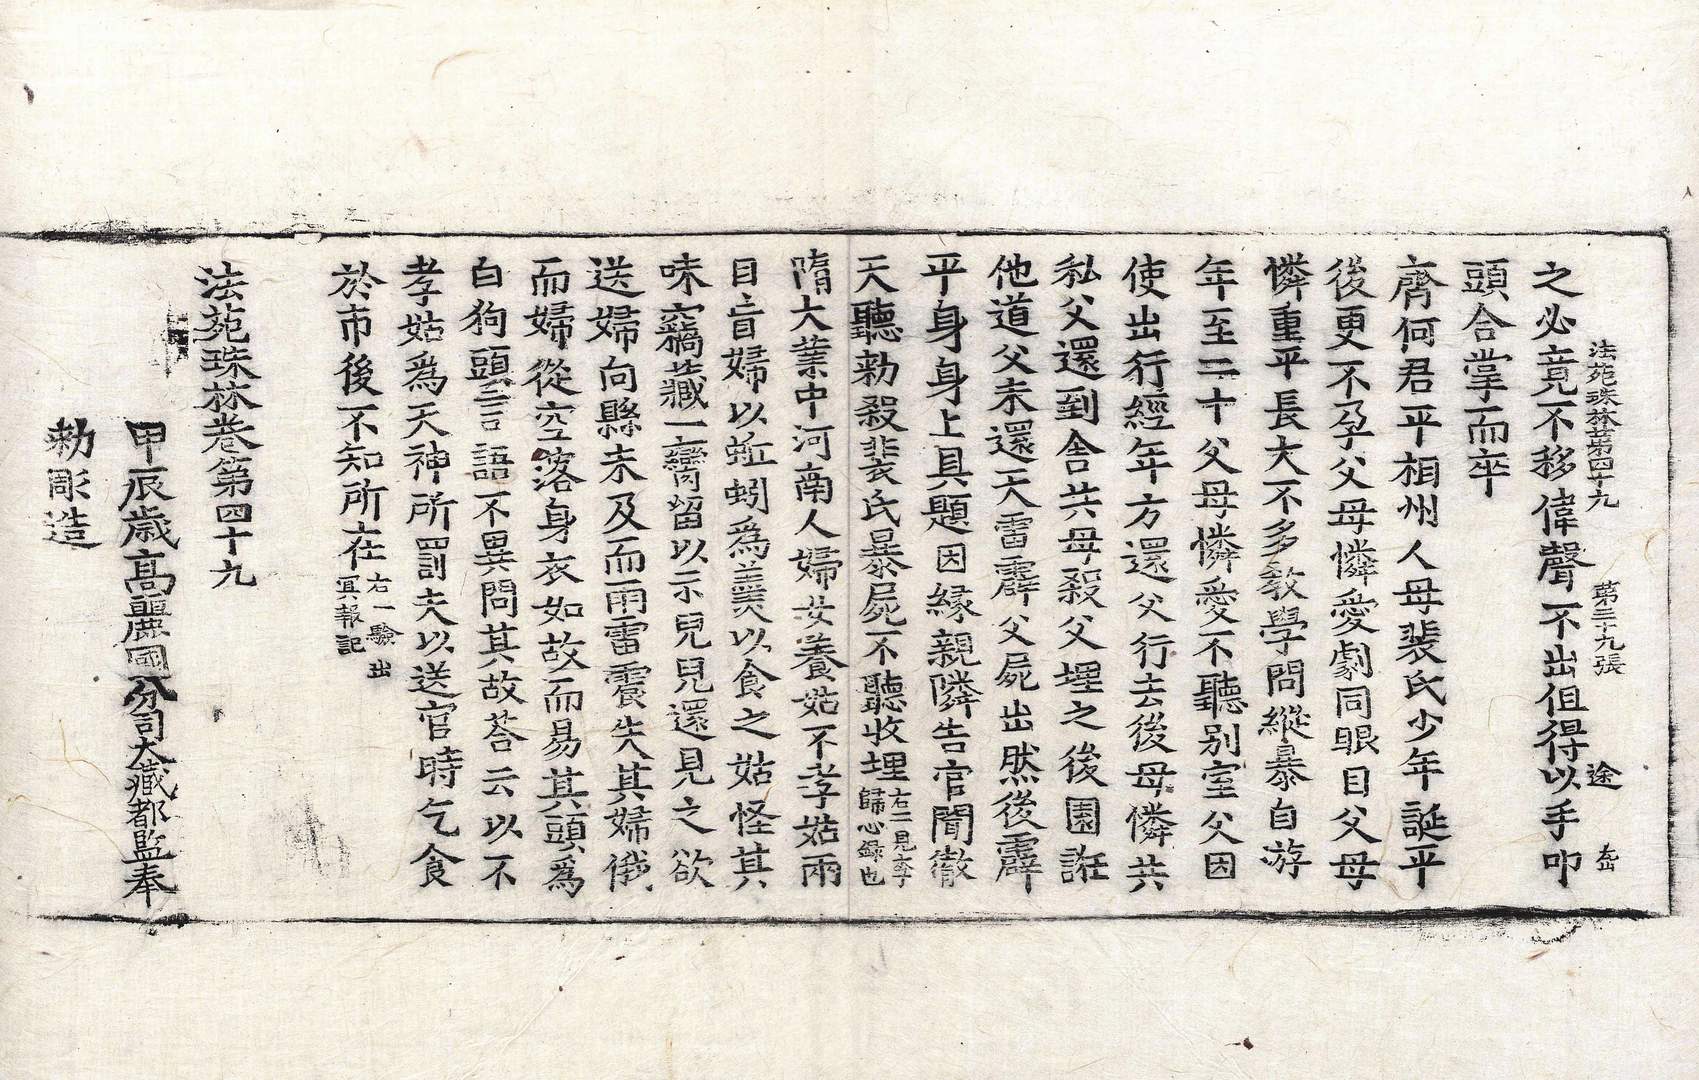 法苑珠林第四十九　第二十九張　途
之必竟不移偉聲不出但得以手叩
頭合掌而卒
齊何君平相州人母裴氏少年誕平
後更不孕父母憐愛劇同眼目父母
憐重平長大不多教學問縱暴自游
年至二十父母憐愛不聽別室父因
使出行經年方還父行去後母憐共
私父還到舍共母殺父埋之後園誑
他道父未還天雷霹父屍出然後霹
平身身上具題因緣親隣告官聞徹
天聽勑殺裴氏暴屍不聽收埋右二見孝歸心錄也
隋大業中河南人婦女養姑不孝姑兩
目盲婦以蚯蚓爲羹以食之姑怪其
味竊藏一臠留以示兒兒還見之欲
送婦向縣未及而雨雷震失其婦俄
而婦從空落身衣如故而易其頭爲
白狗頭言語不異問其故荅云以不
孝姑爲天神所罰夫以送官時乞食
於市後不知所在右一驗出冥報記
法苑珠林卷第四十九
甲辰歲高麗國分司大藏都監奉
勑彫造